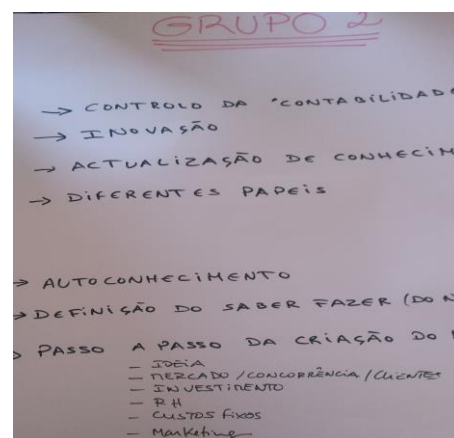 GRUPO 2
→ CONTROLO DA "CONTABILIDADE
→ INOVAÇÃO
→ ACTUALIZAÇÃO DE CONHECIM
→ DIFERENTES PAPEIS
→ AUTOCONHECIMENTO
→ DEFINIÇÃO DO SABER FAZER (DO N
→ PASSO A PASSO DA CRIAÇÃO DO
– IDEIA
– MERCADO / CONCORRÊNCIA / CLIENTES
– INVESTIMENTO
– RH
– CUSTOS FIXOS
– Marketing